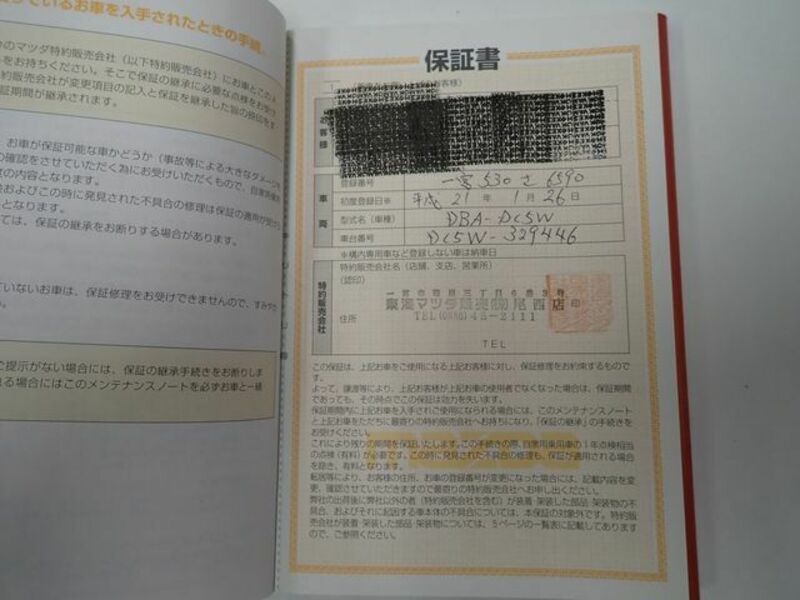 っているお車を入手されたときの手続
のマツダ特約販売会社（以下特約販売会社）にお車とこのメ
をお持ちください。そこで保証の継承に必要な点検をお受け
約販売会社が変更項目の記入と保証を継承した旨の捺印をす
証期間が継承されます。
、お車が保証可能な車かどうか（事故等による大きなダメージや
の確認をさせていただく為にお受けいただくもので、自家用乗用
度の内容となります。
およびこの時に発見された不具合の修理は保証の適用が受け
となります。
ては、保証の継承をお断りする場合があります。
ていないお車は、保証修理をお受けできませんので、すみやか
い。
ご提示がない場合には、保証の継承手続きをお断りしま
れる場合にはこのメンテナンスノートを必ずお車と一緒
保証書
お客様
車両
登録番号 一宮 530 さ 6590
初度登録日※ 平成 21 年 1 月 26 日
型式名（車種） DBA-DC5W
車台番号 DC5W-329446
※構内専用車など登録しない車は納車日
特約販売会社
特約販売会社名（店舗、支店、営業所）
（認印）
東海マツダ販売㈱尾西店 印
住所
TEL(0586)45-2111
TEL
この保証は、上記お車をご使用になる上記お客様に対し、保証修理をお約束するもので
す。
よって、譲渡等により、上記お客様が上記お車の使用者でなくなった場合は、保証期間
であっても、その時点でこの保証は効力を失います。
保証期間内に上記お車を入手されご使用になられる場合には、このメンテナンスノート
と上記お車をただちに最寄りの特約販売会社へお持ちになり、「保証の継承」の手続きを
お受けください。
これにより残りの期間を保証いたします。この手続きの際、自家用乗用車の1年点検相当
の点検（有料）が必要です。この時に発見された不具合の修理も、保証が適用される場合
を除き、有料となります。
転居等により、お客様の住所、お車の登録番号が変更になった場合には、記載内容を変
更、確認させていただきますので最寄りの特約販売会社へお申し出ください。
弊社の出荷後に弊社以外の者（特約販売会社を含む）が装着・架装した部品・架装物の不
具合、およびそれに起因する車本体の不具合については、本保証の対象外です。特約販
売会社が装着・架装した部品・架装物については、5ページの一覧表に記載してあります
ので、ご参照ください。